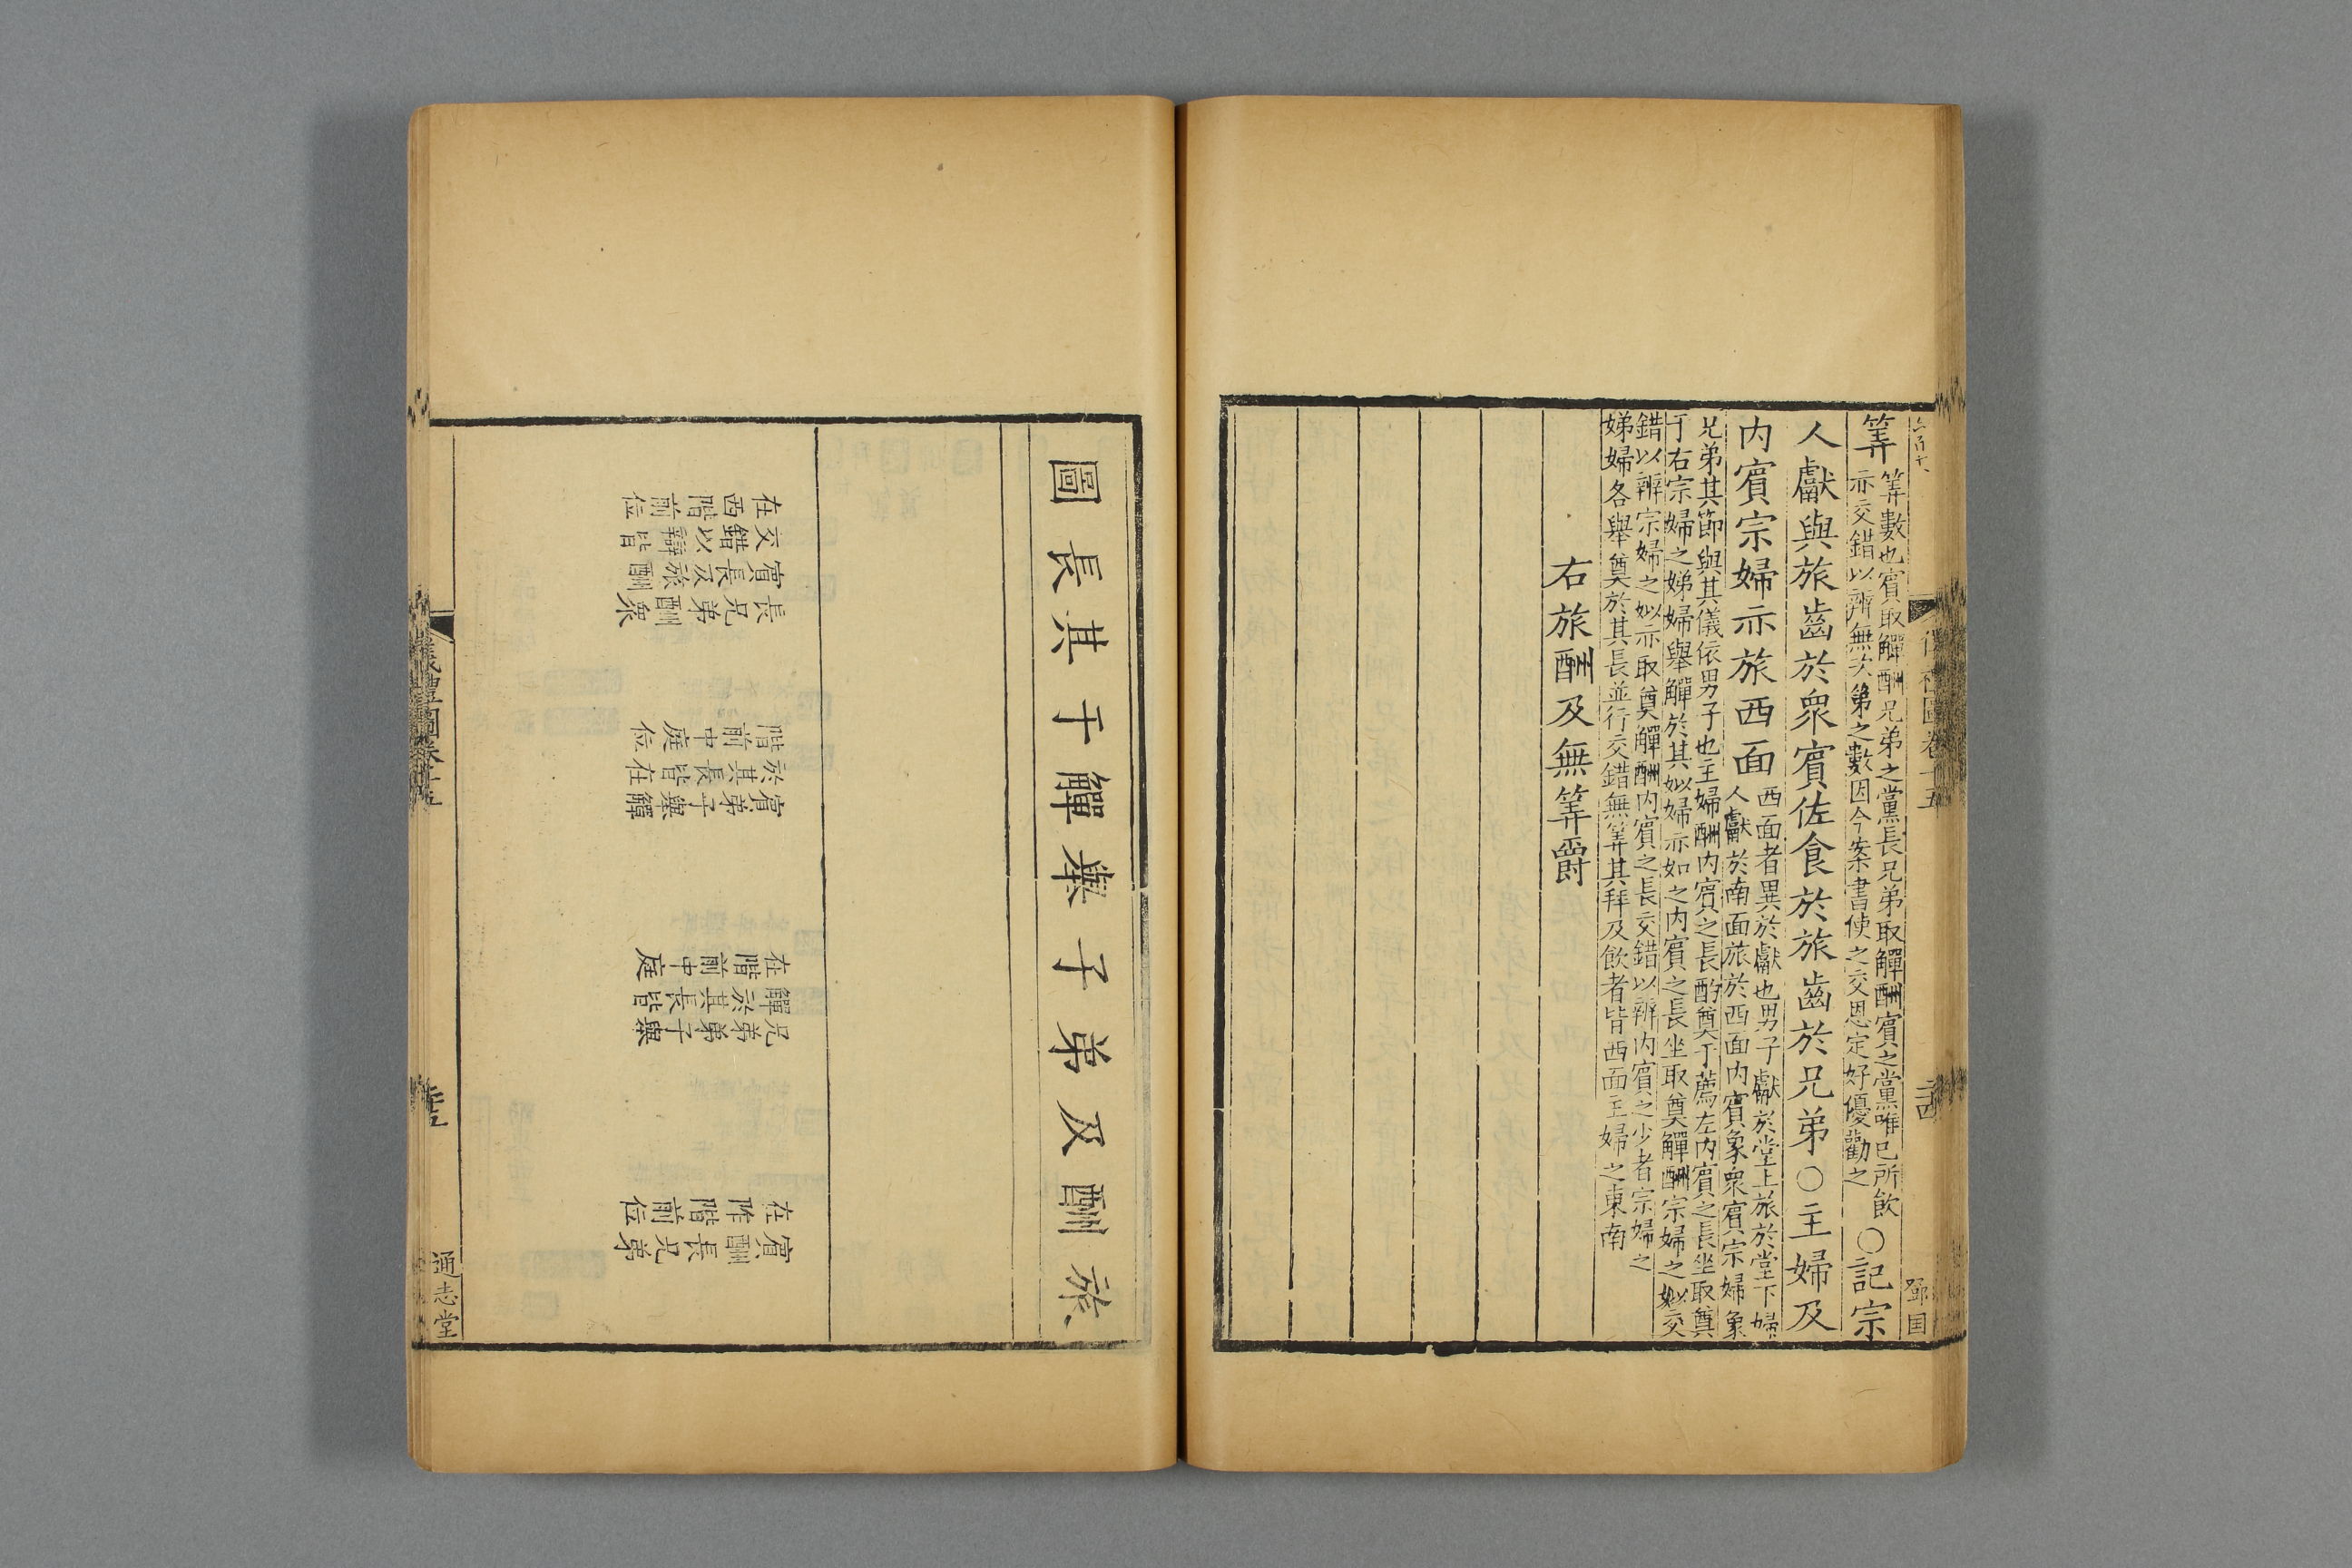 筭
筭數也賓取觶酬兄弟之黨長兄弟取觶酬賓之黨唯已所飲
亦交錯以辨無次第之數因今案書使之交恩定好優勸之
○記宗
人獻與旅齒於衆賓佐食於旅齒於兄弟○主婦及
内賓宗婦亦旅西面
西面者異於獻也男子獻於堂上旅於堂下婦
人獻於南面旅於西面内賓象衆賓宗婦象
兄弟其節與其儀依男子也主婦酬内賓之長酌奠于薦左内賓之長坐取奠
于右宗婦之娣婦舉觶於其姒婦亦如之内賓之長坐取奠觶酬宗婦之姒交
錯以辨宗婦之姒亦取奠觶酬内賓之長交錯以辨内賓之少者宗婦之
娣婦各舉奠於其長並行交錯無筭其拜及飲者皆西面主婦之東南
右旅酬及無筭爵
儀禮圖卷十五
二四
鄧国
旅酬及弟子舉觶于其長圖
長兄弟酬衆
賓長及旅酬
交錯以辯皆
在西階前位
賓弟子舉觶
於其長皆在
階前中庭位
兄弟弟子舉
觶於其長皆
在階前中庭
賓酬長兄弟
在阼階前位
儀禮圖卷十五
通志堂